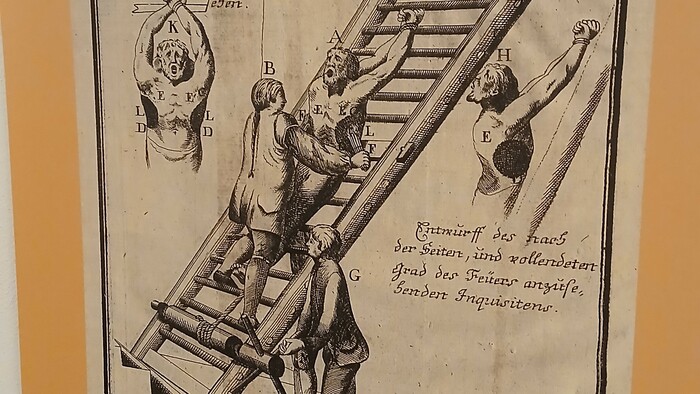 K
A
B
H
E E
E E
E
L L
D D
F
L
F
G
Entwurff des nach
der Seiten, und vollendeten
Grad des Feüers anzuse,
henden Inquisitens.